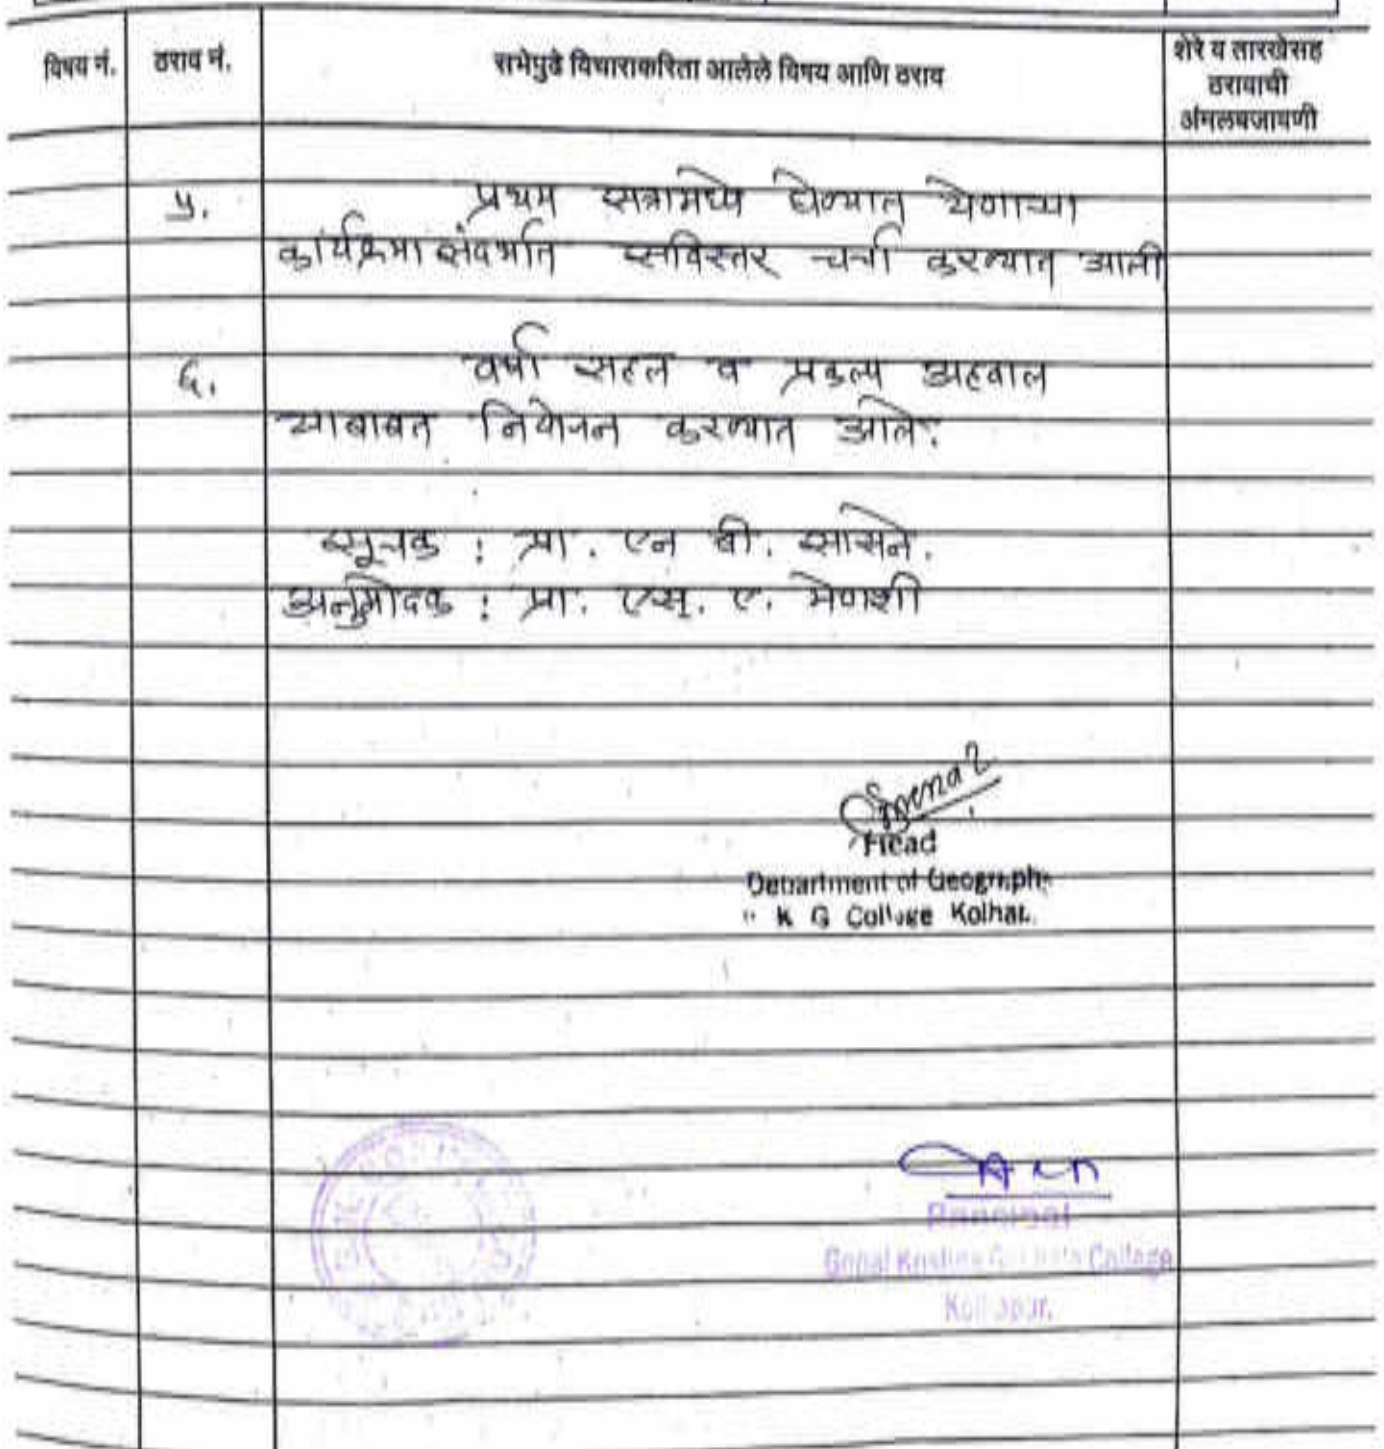 विषय नं.
ठराव नं.
सभेपुढे विचाराकरिता आलेले विषय आणि ठराव
शेरे व तारखेसह
ठरावाची
अंमलबजावणी
५. प्रथम सत्रामध्ये घेण्यात येणाऱ्या
कार्यक्रमा संदर्भात सविस्तर चर्चा करण्यात आली
६. वर्षा सहल व प्रकल्प अहवाल
याबाबत नियोजन करण्यात आले.
सूचक : प्रा. एन बी. सासने.
अनुमोदक : प्रा. एस. ए. मेणशी
Head
Department of Geography
K G College Kolhar.
Principal
Gopal Krishna Gokhale College
Kolhapur.